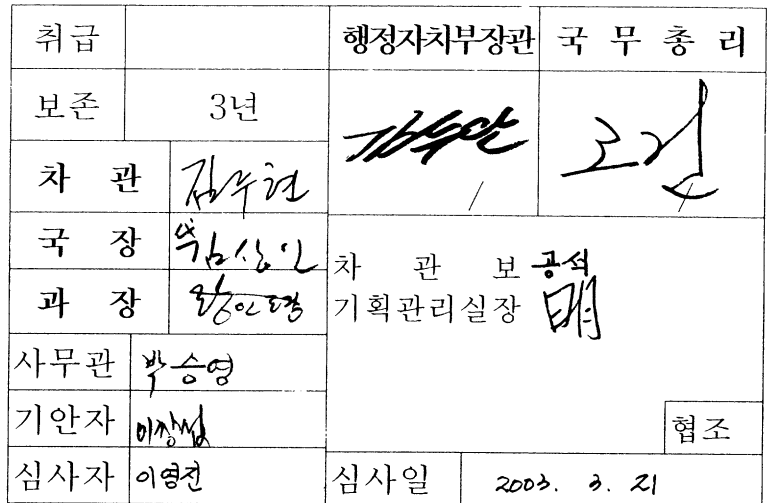 취급
행정자치부장관 국 무 총 리
보존 3년
차 관 김두현
국 장 김상인
과 장
차 관 보 공석
기획관리실장
사무관 박승영
기안자 이장섭
협조
심사자 이영진
심사일 2003. 3. 21